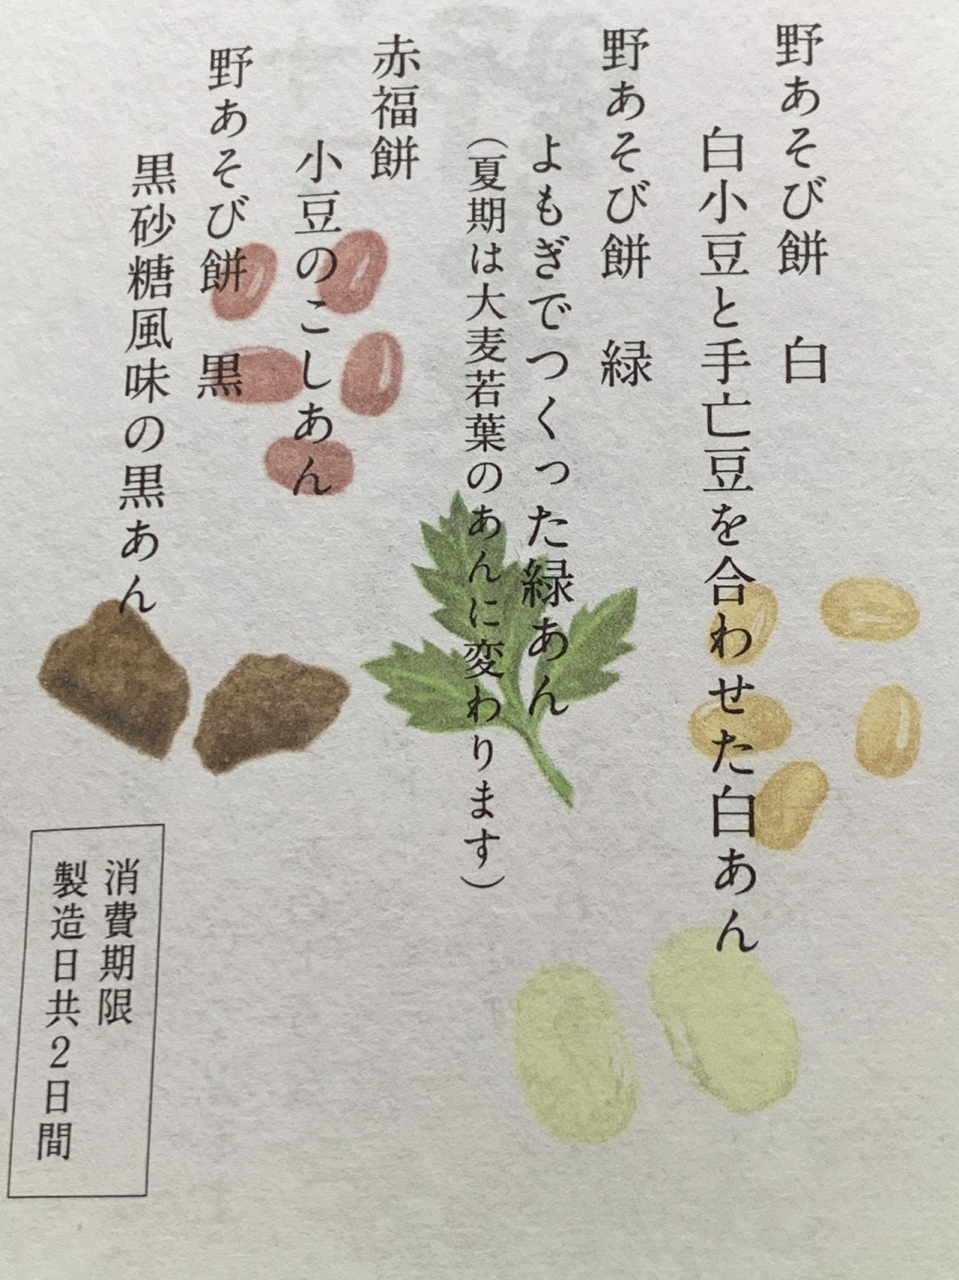 野あそび餅　白
白小豆と手亡豆を合わせた白あん
野あそび餅　緑
よもぎでつくった緑あん
（夏期は大麦若葉のあんに変わります）
赤福餅
小豆のこしあん
野あそび餅　黒
黒砂糖風味の黒あん
消費期限
製造日共2日間